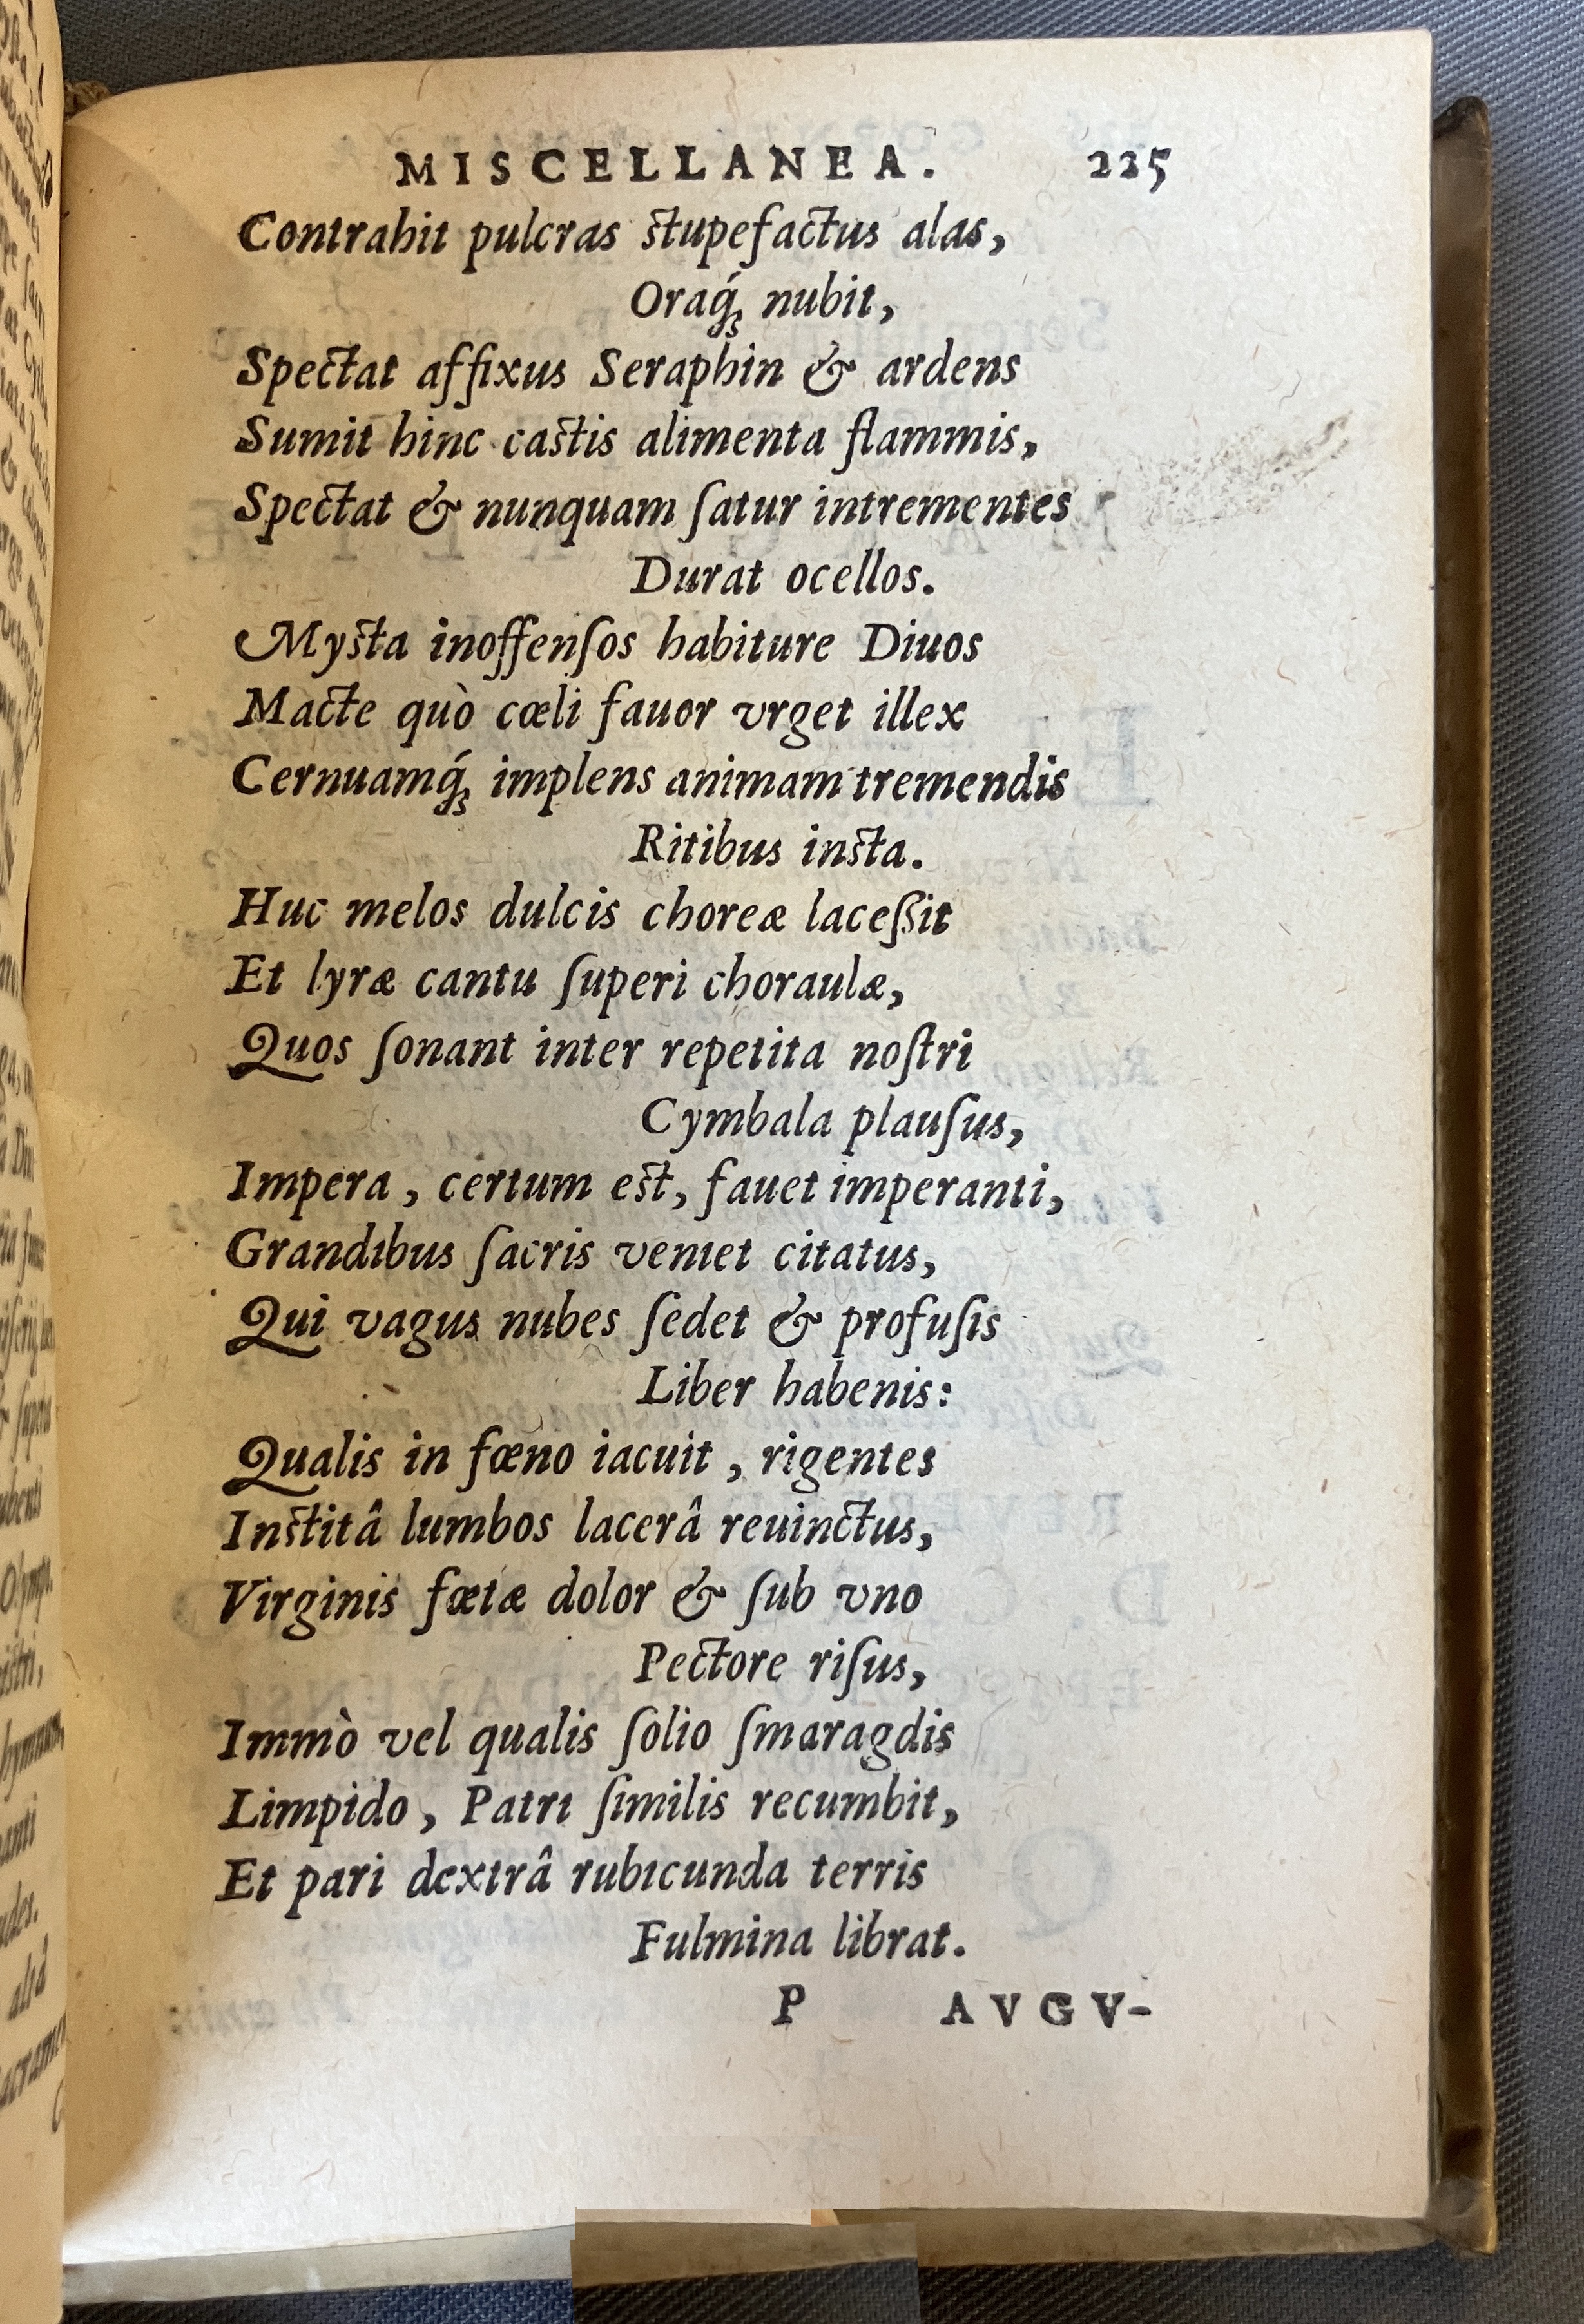 MISCELLANEA. 225
Contrahit pulcras stupefactus alas,
Oraq́; nubit,
Spectat affixus Seraphin & ardens
Sumit hinc castis alimenta flammis,
Spectat & nunquam ſatur intrementes
Durat ocellos.
Mysta inoffenſos habiture Diuos
Macte quò cœli fauor vrget illex
Cernuamq́; implens animam tremendis
Ritibus insta.
Huc melos dulcis choreæ laceßit
Et lyræ cantu ſuperi choraulæ,
Quos ſonant inter repetita noſtri
Cymbala plauſus,
Impera, certum est, fauet imperanti,
Grandibus ſacris veniet citatus,
Qui vagus nubes ſedet & profuſis
Liber habenis:
Qualis in fœno iacuit, rigentes
Institâ lumbos lacerâ reuinctus,
Virginis fœtæ dolor & ſub vno
Pectore riſus,
Immò vel qualis ſolio ſmaragdis
Limpido, Patri ſimilis recumbit,
Et pari dextrâ rubicunda terris
Fulmina librat.
P AVGV-